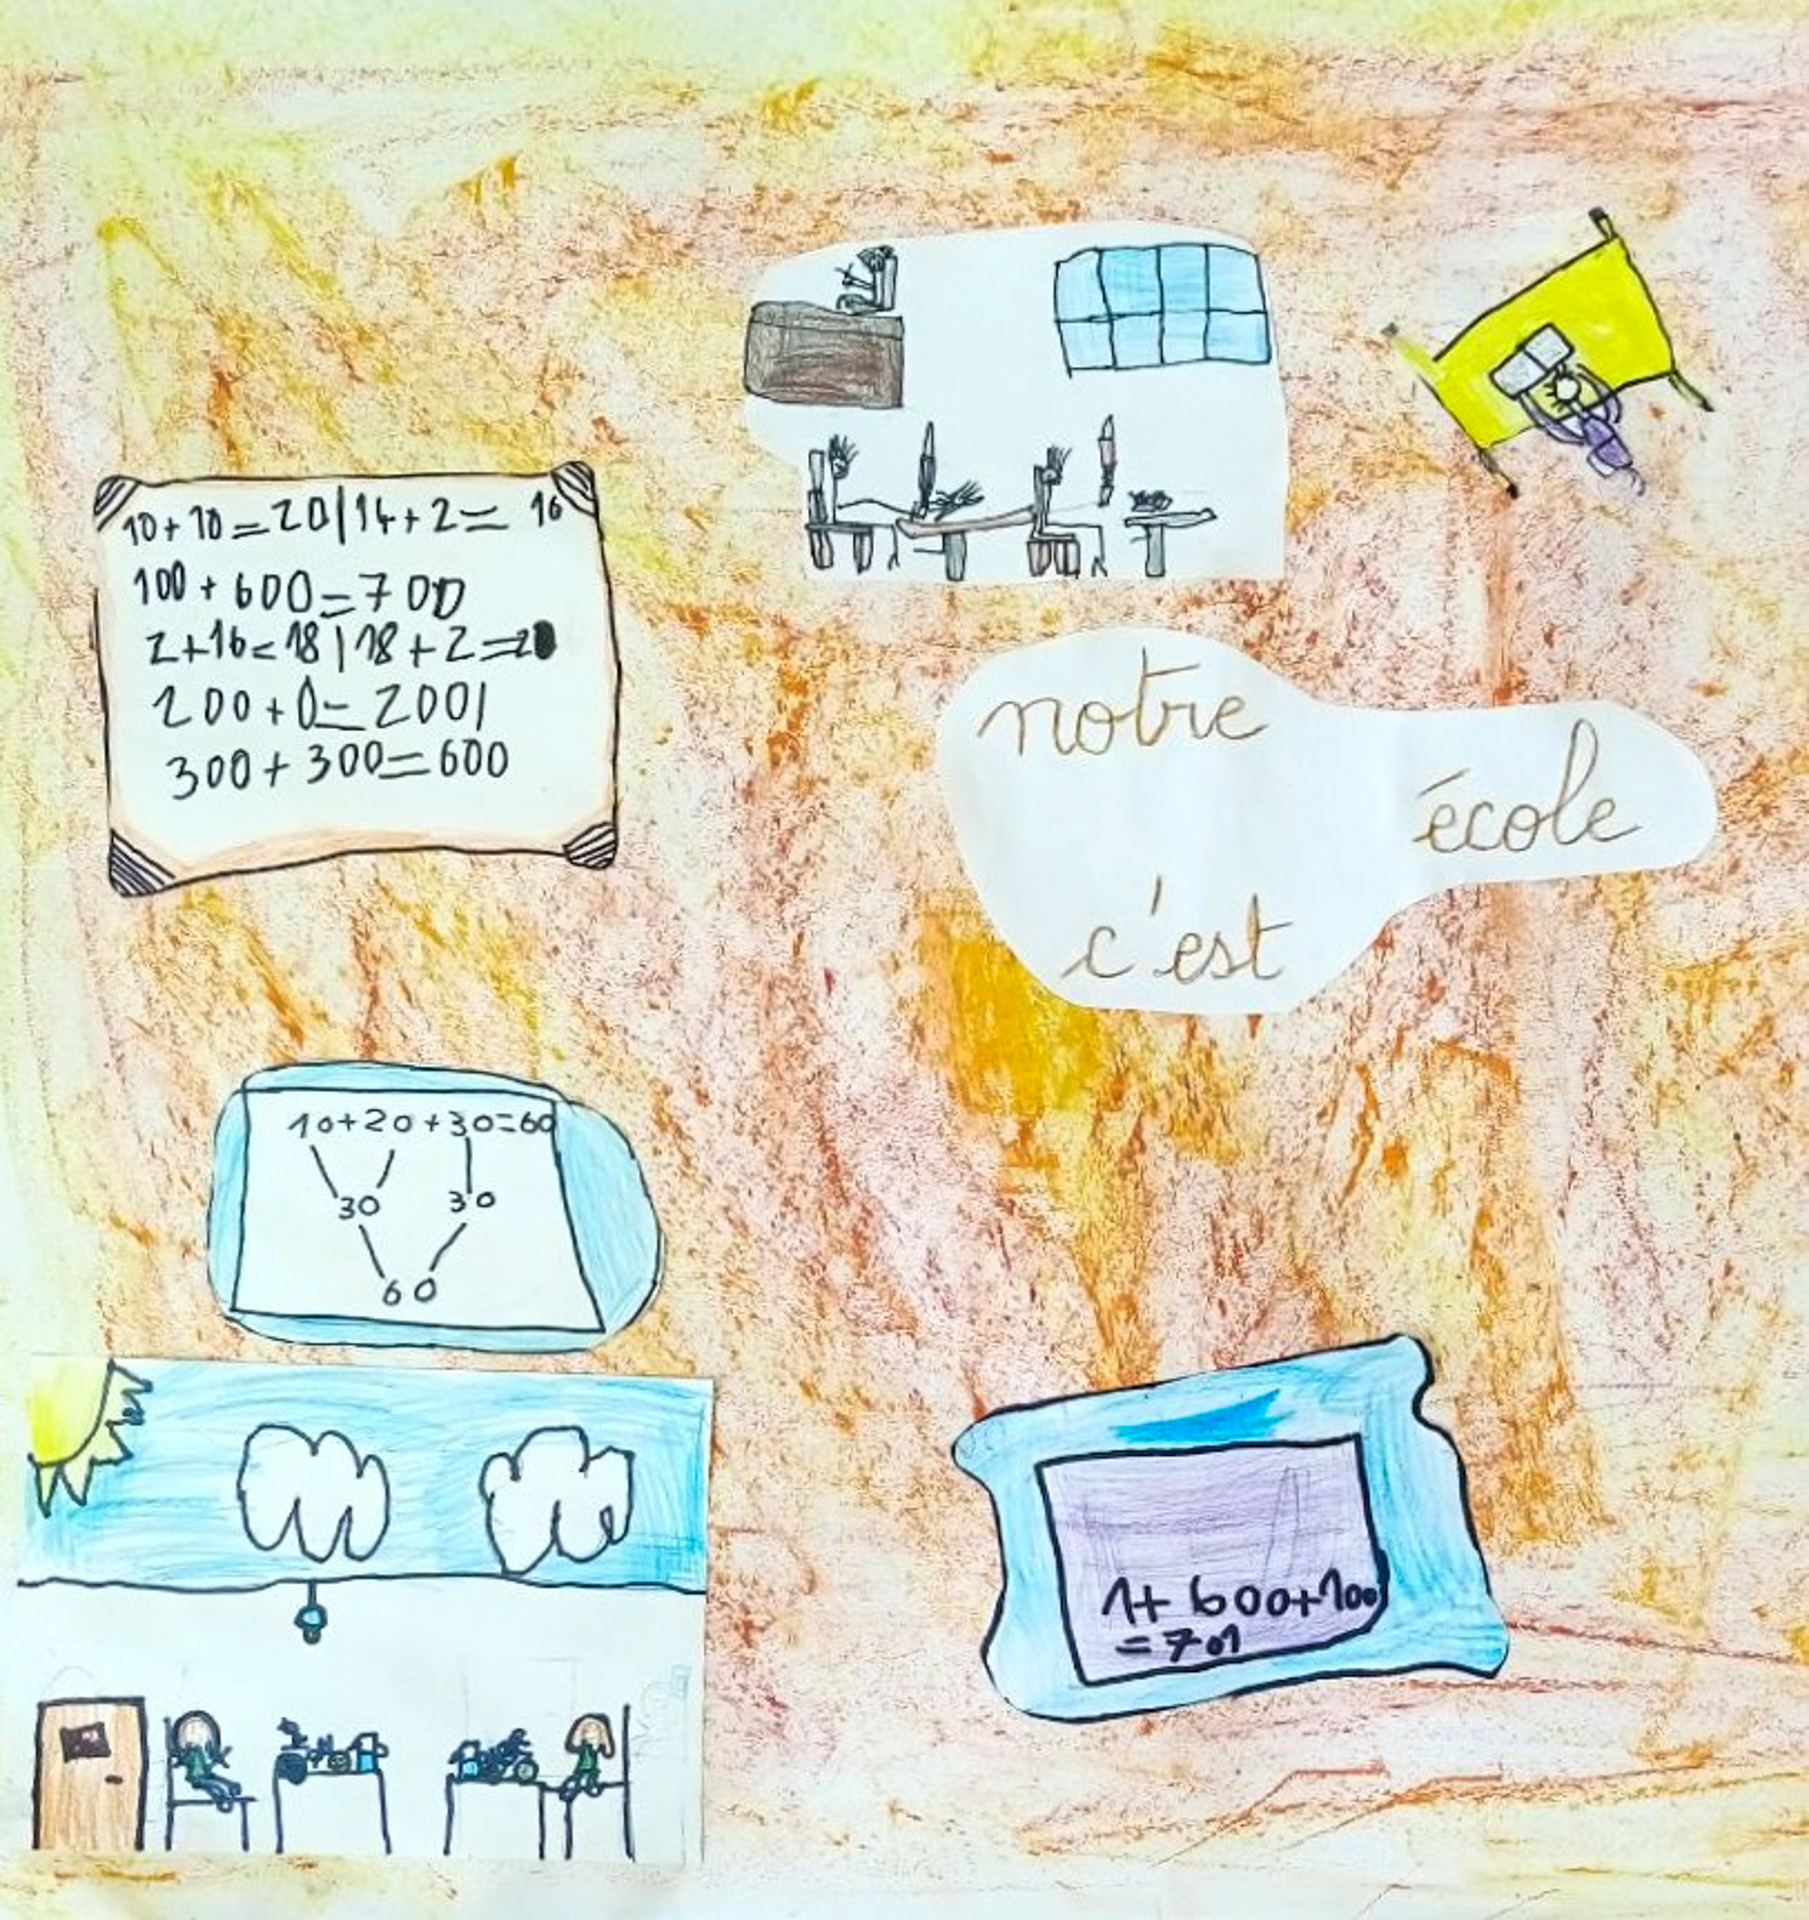 10+10=20|14+2= 16
100+600=700
2+16=18|18+2=20
200+0=200|
300+300=600
notre
école
c'est
10+20+30=60
30 30
60
1+600+100
=701